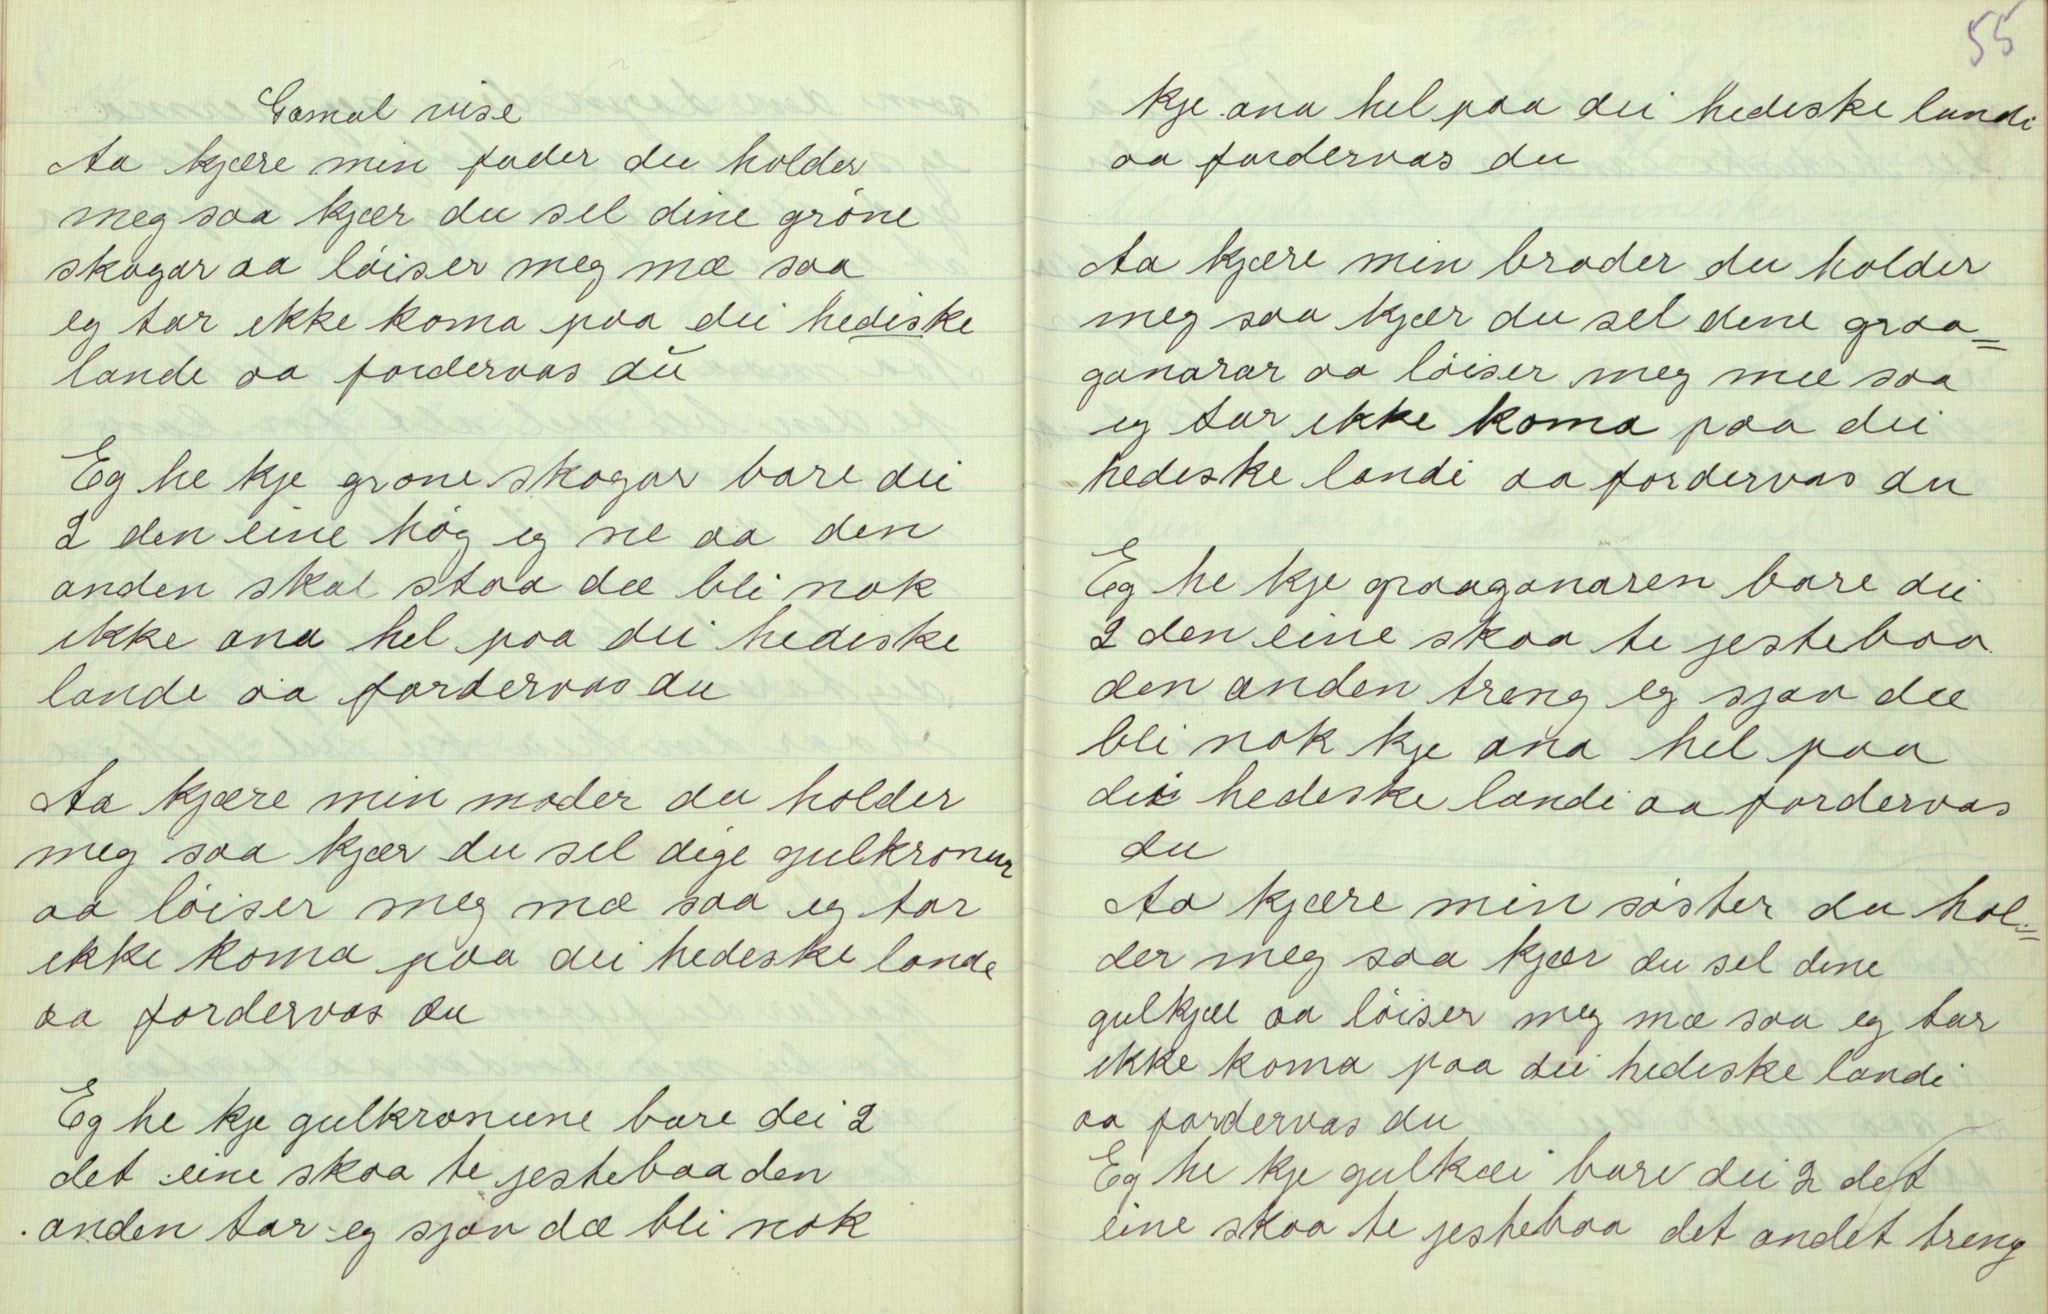 Gamal vise
Aa kjære min fader du holder
meg saa kjær du sel dine gröne
skogar aa löiser meg mæ saa
eg tar ikke koma paa dei hediske
lande aa fordervas du
Eg he kje grone skogar bare dei
2 den eine hög eg ne aa den
anden skal staa dæ bli nok
ikke ana hel paa dei hedeske
lande aa fordervas du
Aa kjære min moder du holder
meg saa kjær du sel dige gulkronur
aa löiser meg mæ saa eg tar
ikke koma paa dei hedeske lande
aa fordervas du
Eg he kje gulkronune bare dei 2
det eine skaa te jestebaa den
anden tar eg sjøv dæ bli nok
55
kje ana hel paa dei hedeske landi
aa fordervas du
Aa kjære min broder du holder
meg saa kjær du sel dene graa=
ganarar aa löiser meg mæ saa
eg tar ikke koma paa dei
hedeske landi aa fordervas du
Eg he kje graaganaren bare dei
2 den eine skaa te jestebaa
den anden treng eg sjøv dæ
bli nok kje ana hel paa
dei hedeske landi aa fordervas
du
Aa kjære min söster du hol=
der meg saa kjær du sel dene
gulkjæe aa löiser meg mæ saa eg tar
ikke koma paa dei hedeske landi
aa fordervas du
Eg he kje gulkæi bare dei 2 det
eine skaa te jestebaa det andet treng